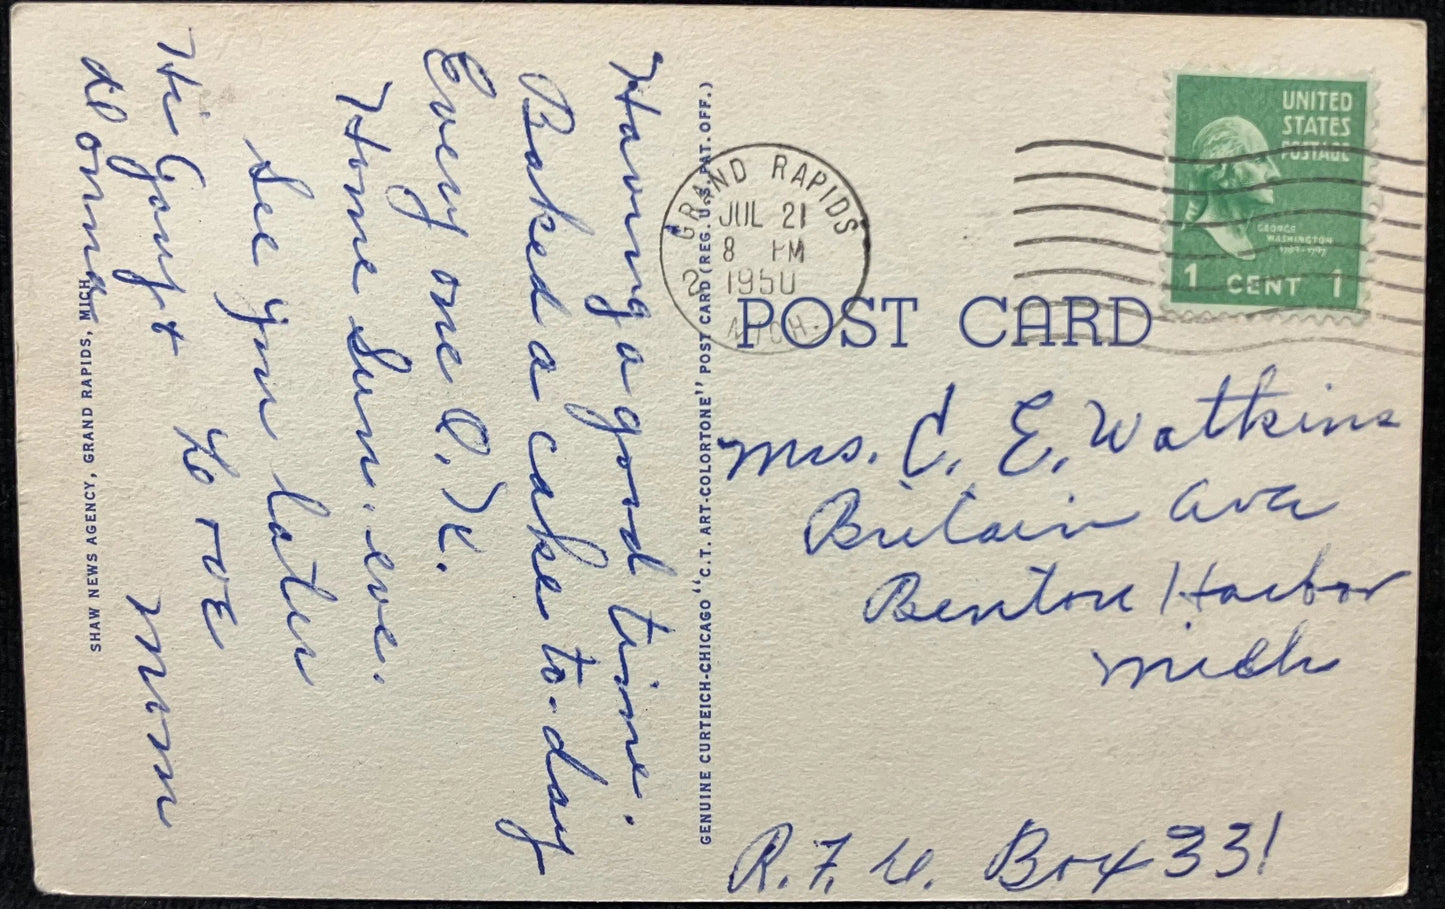 Having a good time.
Baked a cake to-day
Every one O.K.
Home Sun. eve.
See you later
LOVE
Mom
Hi Gary &
Donna
SHAW NEWS AGENCY, GRAND RAPIDS, MICH.
GENUINE CURTEICH-CHICAGO "C.T. ART-COLORTONE" POST CARD (REG. U.S. PAT. OFF.)
GRAND RAPIDS
JUL 21
8 PM
2 1950
MICH.
UNITED
STATES
POSTAGE
GEORGE
WASHINGTON
1789-1797
1 CENT 1
POST CARD
Mrs. C. E. Watkins
Britain Ave
Benton Harbor
Mich
R.F.D. Box 331